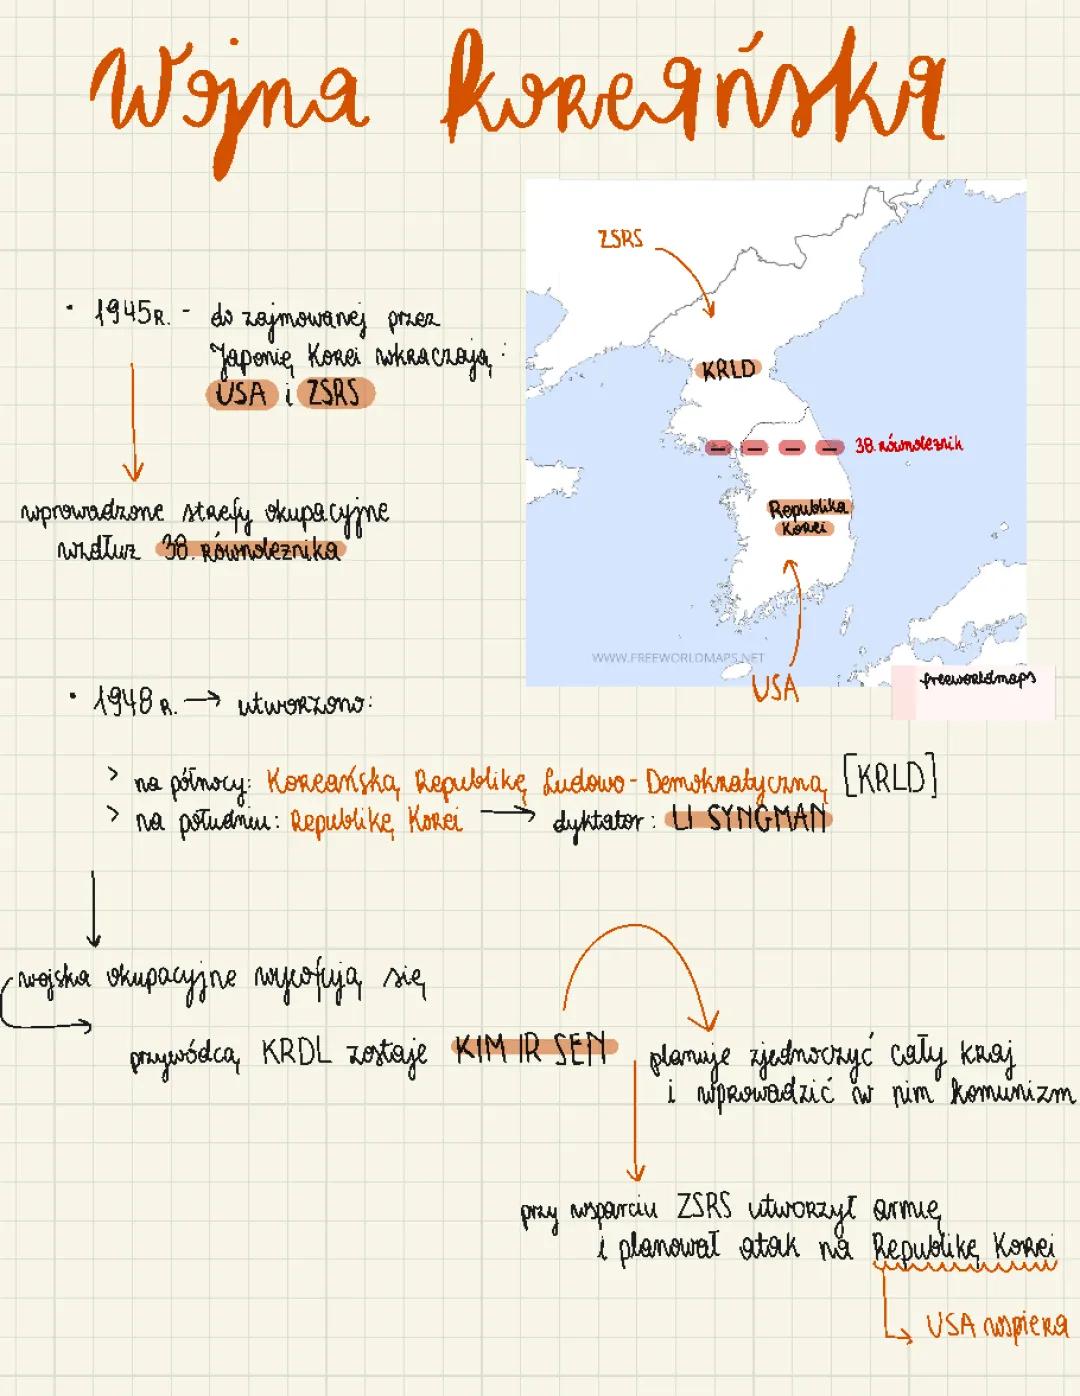 Wojna koreańska
ZSRS
• 1945R. - do zajmowanej przez
Japonię Korei wkraczają:
USA i ZSRS
KRLD
38. równoleżnik
wprowadzone strefy okupacyjne
wzdłuż 38. równoleżnika
Republika
Korei
WWW.FREEWORLDMAPS.NET
USA
freeworldmaps
• 1948 R. → utworzono:
> na północy: Koreańską Republikę Ludowo-Demokratyczną [KRLD]
> na południu: Republikę Korei → dyktator: LI SYNGMAN
wojska okupacyjne wycofują się
przywódcą KRDL zostaje KIM IR SEN
planuje zjednoczyć cały kraj
i wprowadzić w nim komunizm
przy wsparciu ZSRS utworzył armię
i planował atak na Republikę Korei
USA wspiera